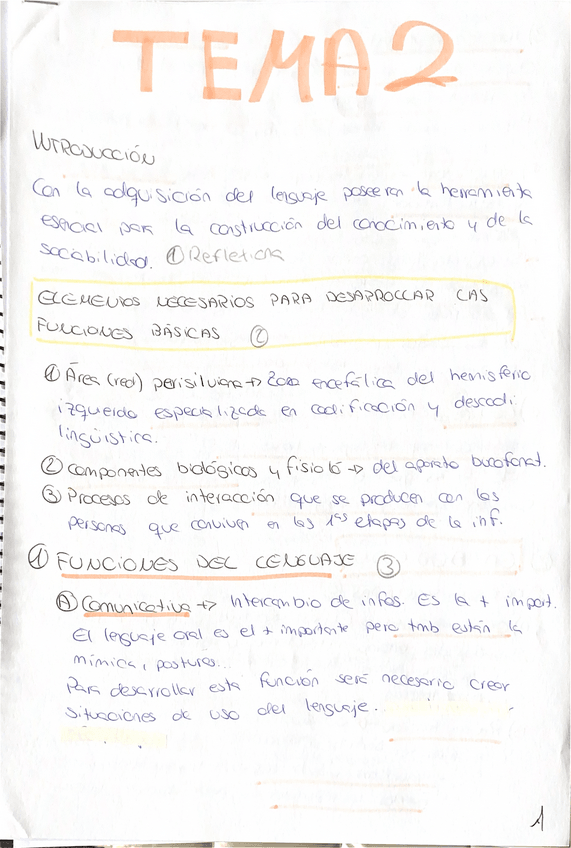 TEMA 2
INTRODUCCIÓN
Con la adquisición del lenguaje poseeran la herramienta
esencial para la construcción del conocimiento y de la
sociabilidad. ①
ELEMENTOS NECESARIOS PARA DESARROLLAR LAS
FUNCIONES BÁSICAS ②
① Área (red) perisilviana → zona encefálica del hemisferio
izquierdo especializada en codificación y descodi
lingüística.
② Componentes biológicos y fisioló → del aparato bucofonat.
③ Procesos de interacción que se producen con las
personas que conviven en las 1ªs etapas de la inf.
① FUNCIONES DEL LENGUAJE ③
Ⓐ Comunicativa → Intercambio de infos. Es la + import.
El lenguaje oral es el + importante pero tmb están la
mímica, posturas...
Para desarrollar esta función será necesario crear
situaciones de uso del lenguaje.
1